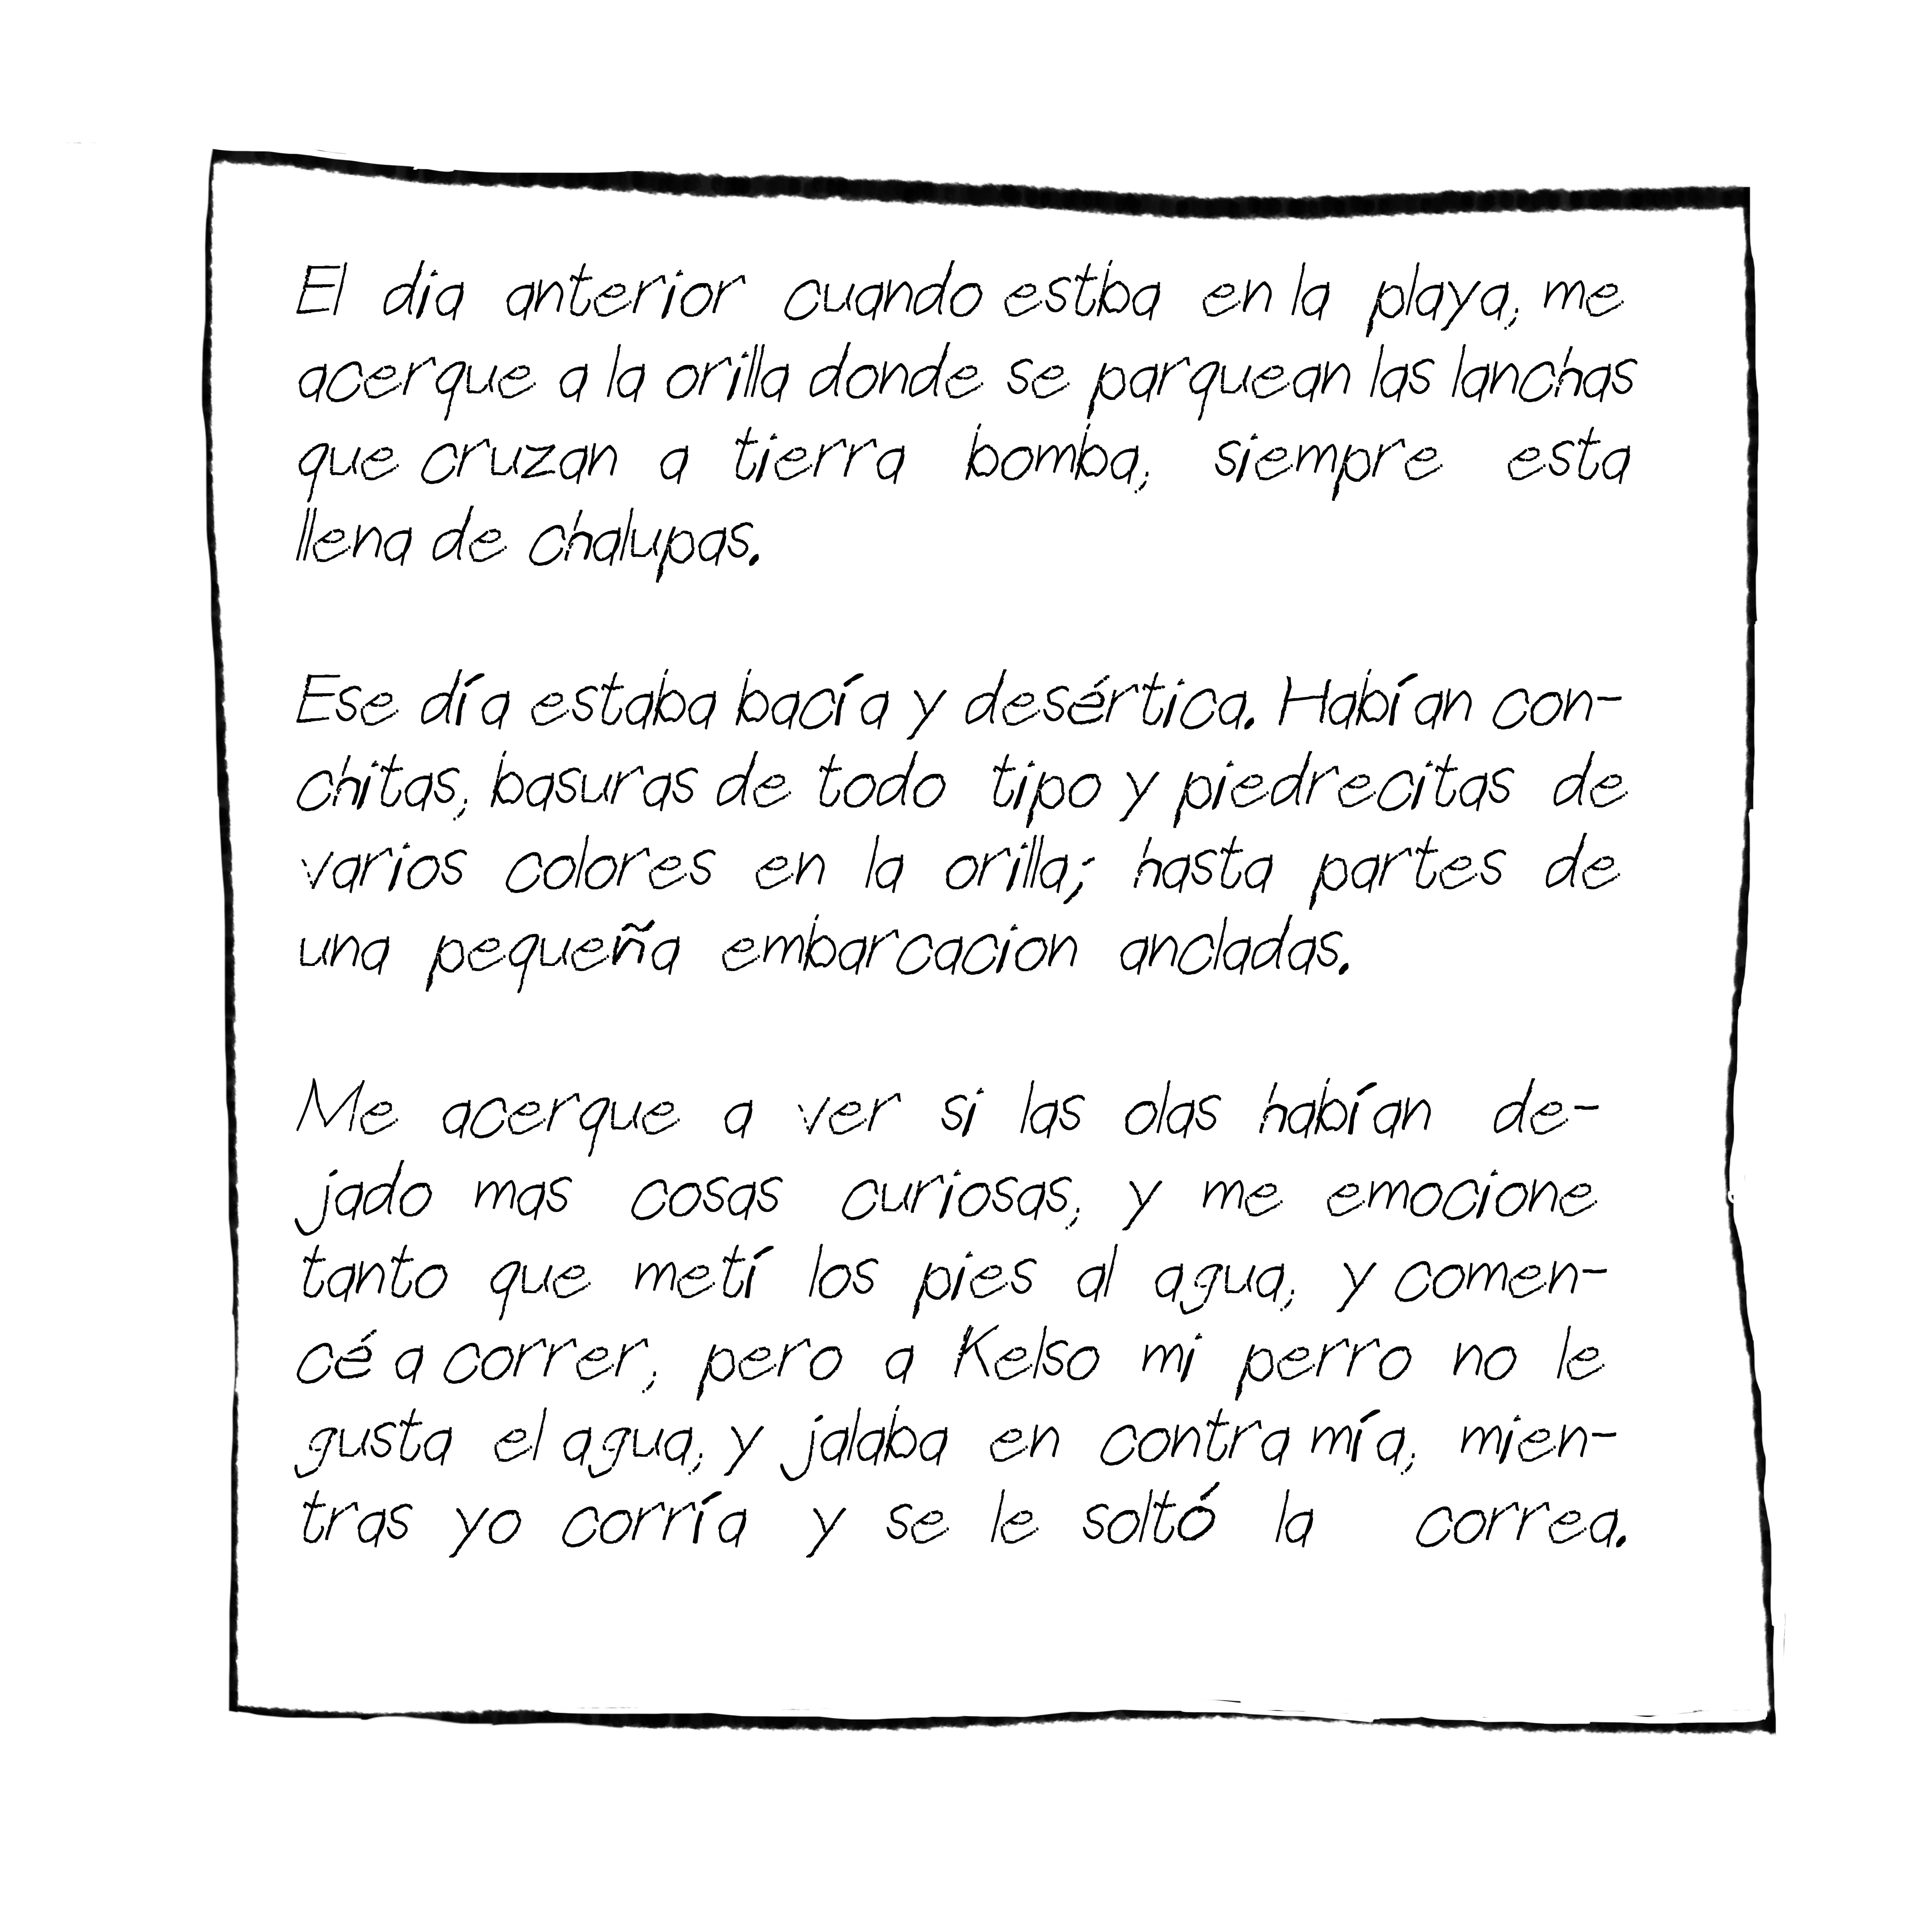 El dia anterior cuando estba en la playa, me
acerque a la orilla donde se parquean las lanchas
que cruzan a tierra bomba, siempre esta
llena de chalupas.
Ese día estaba bacía y desértica. Habían con-
chitas, basuras de todo tipo y piedrecitas de
varios colores en la orilla; hasta partes de
una pequeña embarcacion ancladas.
Me acerque a ver si las olas habían de-
jado mas cosas curiosas, y me emocione
tanto que metí los pies al agua, y comen-
cé a correr, pero a Kelso mi perro no le
gusta el agua, y jalaba en contra mía, mien-
tras yo corría y se le soltó la correa.